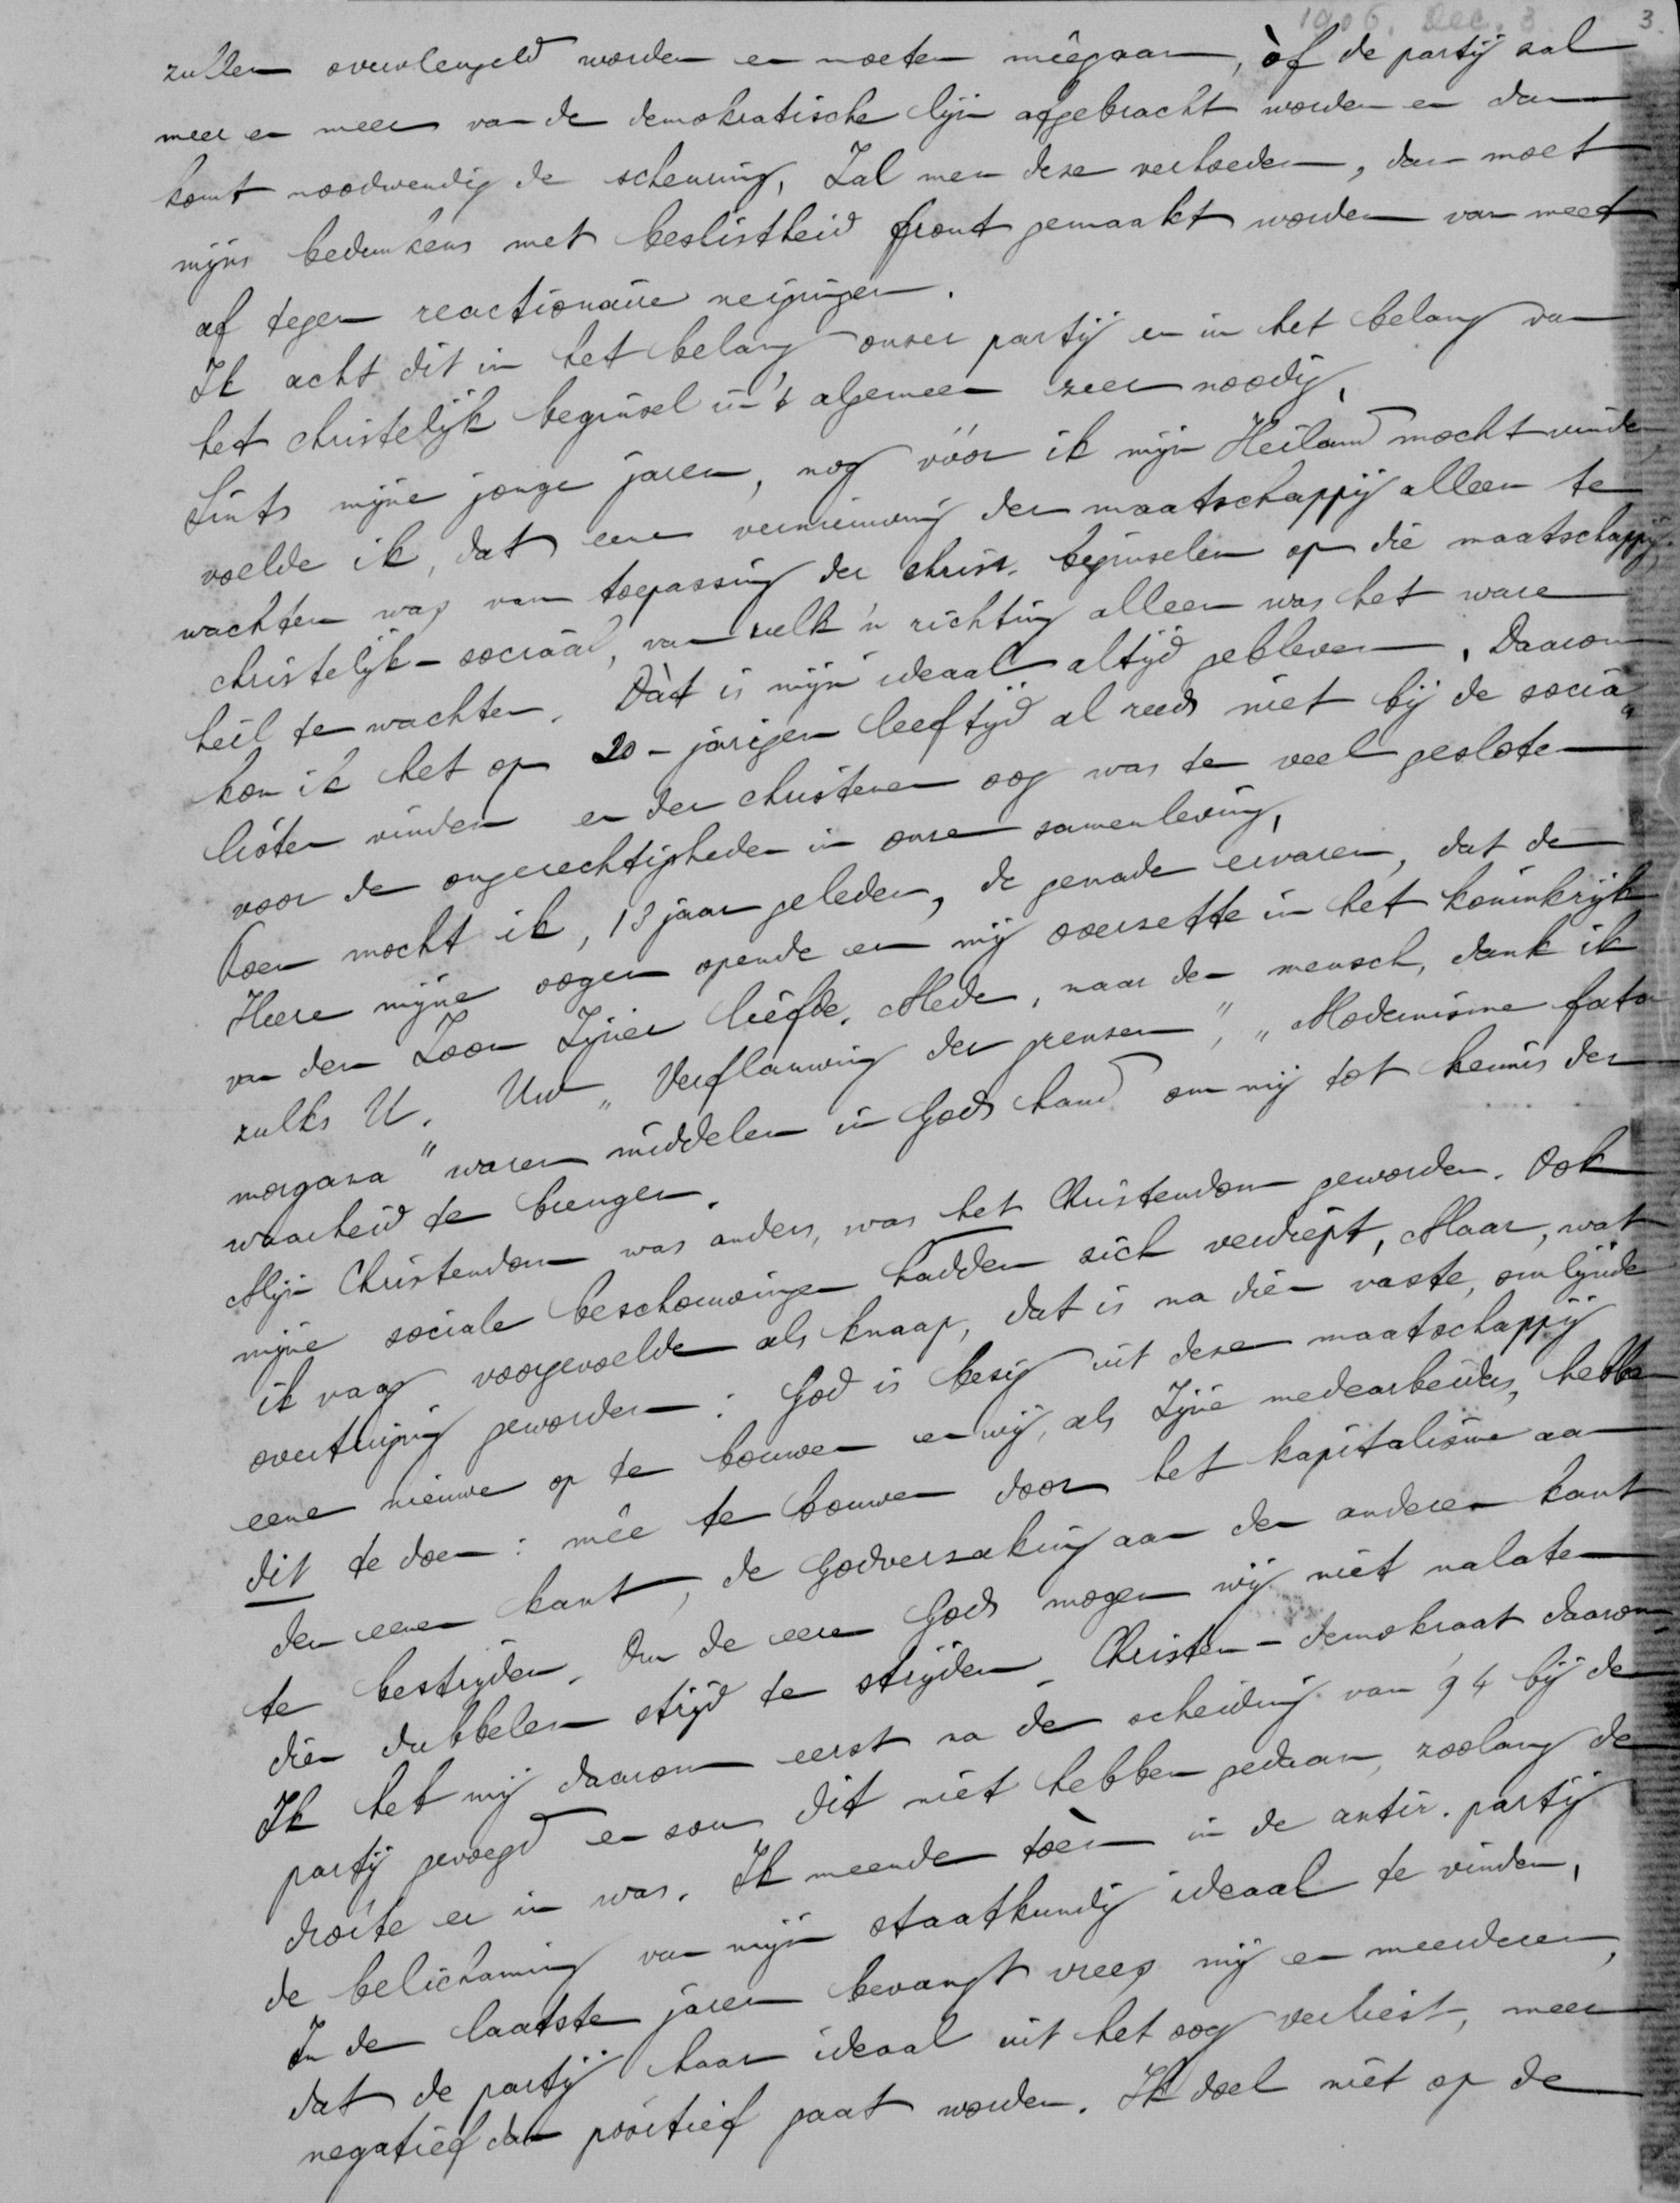 1906. Dec. 3 3
zullen overvleugeld worden en moeten meêgaan, òf de partij zal
meer en meer van de demokratische lijn afgebracht worden en dan
komt noodwendig de scheuring. Zal men deze verhoeden, dan moet
mijns bedunkens met beslistheid front gemaakt worden van meet
af tegen reactionaire neigingen.
Ik acht dit in het belang onzer partij en in het belang van
het christelijk beginsel in 't algemeen zeer noodig.
Sints mijne jonge jaren, nog vóór ik mijn Heiland mocht vinden,
voelde ik, dat eene vernieuwing der maatschappij alleen te
wachten was van toepassing der christ. beginselen op die maatschappij.
christelijk-sociaal, van zulk 'n richting alleen was het ware
heil te wachten. Dàt is mijn ideaal altijd gebleven. Daarom
kon ik het op 20-jarigen leeftijd al reeds niet bij de socia-
listen vinden en der christenen oog was te veel gesloten
voor de ongerechtigheden in onze samenleving.
Toen mocht ik, 13 jaar geleden, de genade ervaren, dat de
Heere mijne oogen opende en mij overzette in het koninkrijk
van den Zoon Zijner liefde. Mede, naar den mensch, dank ik
zulks U. Uw „Verflauwing der grenzen", „Modernisme fata
morgana" waren middelen in Gods hand om mij tot kennis der
waarheid te brengen.
Mijn Christendom was anders, was het Christendom geworden. Ook
mijne sociale beschouwingen hadden zich verdiept. Maar, wat
ik vaag voorgevoelde als knaap, dat is na dien vaste, omlijnde
overtuiging geworden: God is bezig uit deze maatschappij
eene nieuwe op te bouwen en wij, als Zijne medearbeiders, hebben
dit te doen: meê te bouwen door het kapitalisme aan
den eenen kant, de Godverzaking aan den anderen kant
te bestrijden. Om de eere Gods mogen wij niet nalaten
dien dubbelen strijd te strijden. Christen-demokraat daarom.
Ik heb mij daarom eerst na de scheiding van '94 bij de
partij gevoegd en zou dit niet hebben gedaan, zoolang de
droite er in was. Ik meende toèn in de antir. partij
de belichaming van mijn staatkundig ideaal te vinden.
In de laatste jaren bevangt vrees mij en meerderen,
dat de partij haar ideaal uit het oog verliest, meer
negatief dan positief gaat worden. Ik doel niet op de